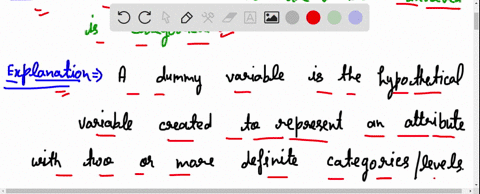 is
Explanation:⇒ A dummy variable is the hypothetical
variable created to represent an attribute
with two or more definite categories/levels.